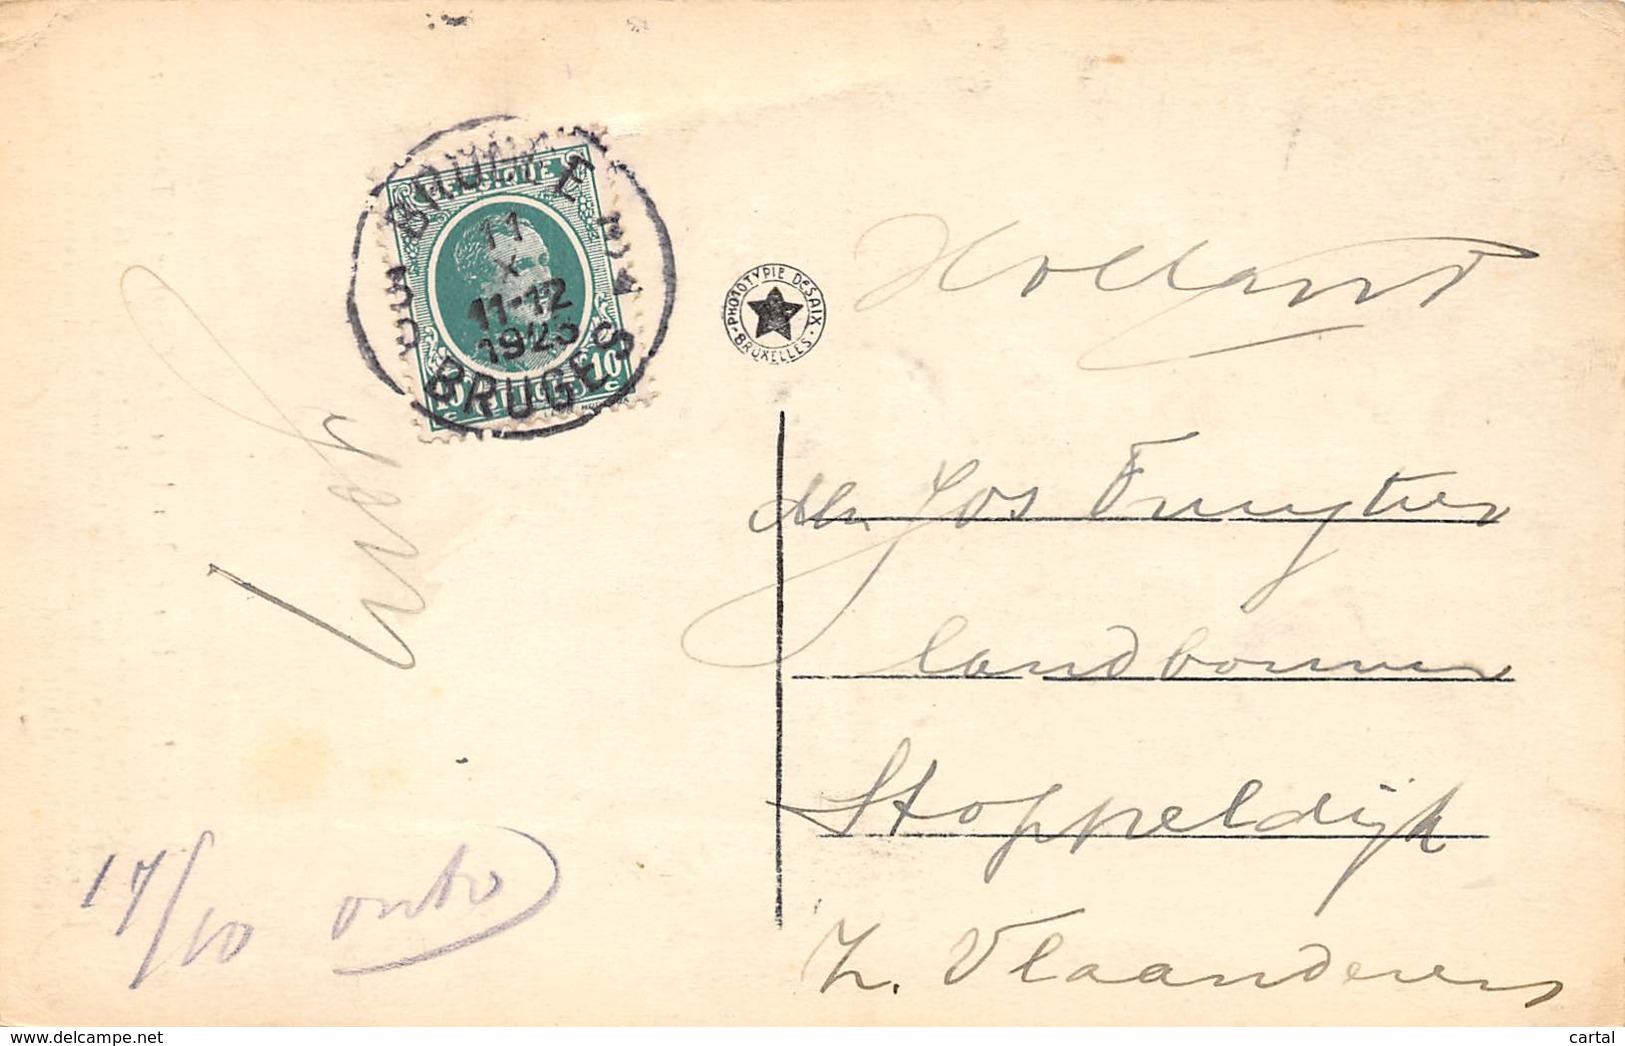 BRUGGE
BELGIQUE
11
X
11-12
1923
BRUGES
10 c
BELGIË
10 c
PHOTOTYPIE DESAIX
BRUXELLES
Holland
Mr. Jos Fruytier
landbouwer
Stoppeldijk
Z. Vlaanderen
17/10
www.delcampe.net
cartal